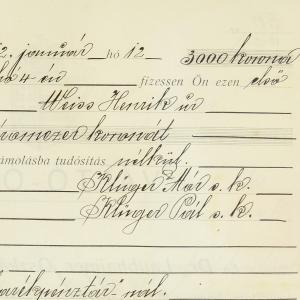 2. január hó 12 3000 korona
hó 4 én fizessen Ön ezen első
Weiss Henrik úr
áromezer koronát
zámolásba tudósítás nélkül.
Klinger Mór s. k.
Klinger Pál s. k.
arékpénztár-nál.